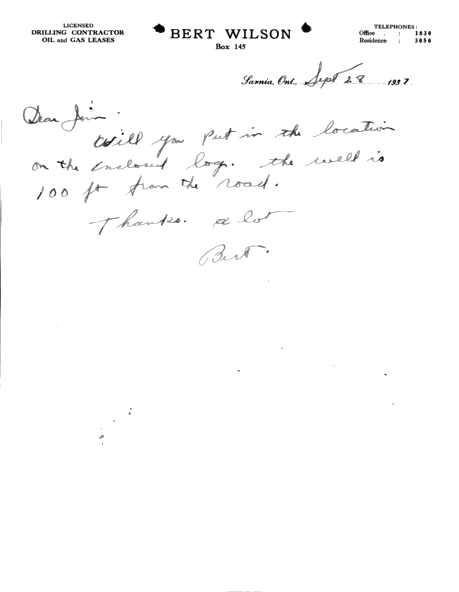 LICENSED
DRILLING CONTRACTOR
OIL and GAS LEASES
BERT WILSON
Box 145
TELEPHONES:
Office . : 1830
Residence : 3050
Sarnia, Ont., Sept 28 1937
Dear Jim.
Will you put in the location
on the enclosed log. the well is
100 ft from the road.
Thanks. a lot
Bert.